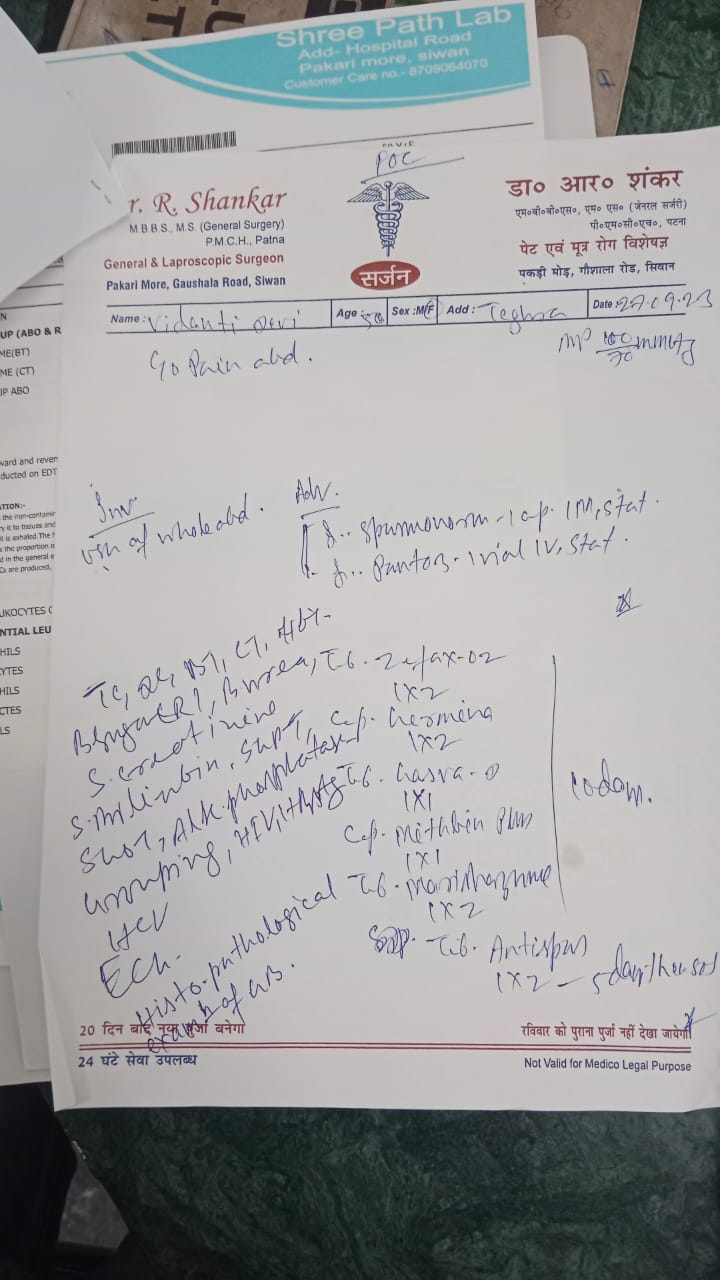 Shree Path Lab
Add- Hospital Road
Pakari more, siwan
Customer Care no.- 8709064070
POC
r. R. Shankar
M.B.B.S., M.S. (General Surgery)
P.M.C.H., Patna
General & Laproscopic Surgeon
Pakari More, Gaushala Road, Siwan
सर्जन
डा० आर० शंकर
एम०बी०बी०एस०, एम० एस० (जेनरल सर्जरी)
पी०एम०सी०एच०, पटना
पेट एवं मूत्र रोग विशेषज्ञ
पकड़ी मोड़, गौशाला रोड, सिवान
Name: Vidanti Devi Age: 50 Sex: M/F Add: Teghra Date: 27.09.23
C/o Pain abd.
100/70 mmHg
Inv
USG of whole abd.
Adv.
Spasmonorm - 1 ap. IM, stat.
Pantos - 1 vial IV, stat.
TC, DC, BT, CT, Hb%
B. Sugar (R), B. urea,
S. creatinine
S. Bilirubin, SGPT,
SGOT, Alk. phosphatase
Grouping, HIV, HBsAg
HCV
ECG.
Histo-pathological
exam of GB.
Tb. Zefax-O2
1x2
Cap.
1x2
Tb.
1x1
Cap. Plus
1x1
Tb.
1x2
10 days.
Tb. Antispas
1x2 - 5 days
20 दिन बाद नया पुर्जा बनेगा
रविवार को पुराना पुर्जा नहीं देखा जायेगा
24 घंटे सेवा उपलब्ध
Not Valid for Medico Legal Purpose
UP (ABO & R
ME(BT)
ME (CT)
UP ABO
ward and rever
ducted on EDT
ATION:-
the iron-containir
NTIAL LEU
HILS
YTES
HILS
CTES
LS